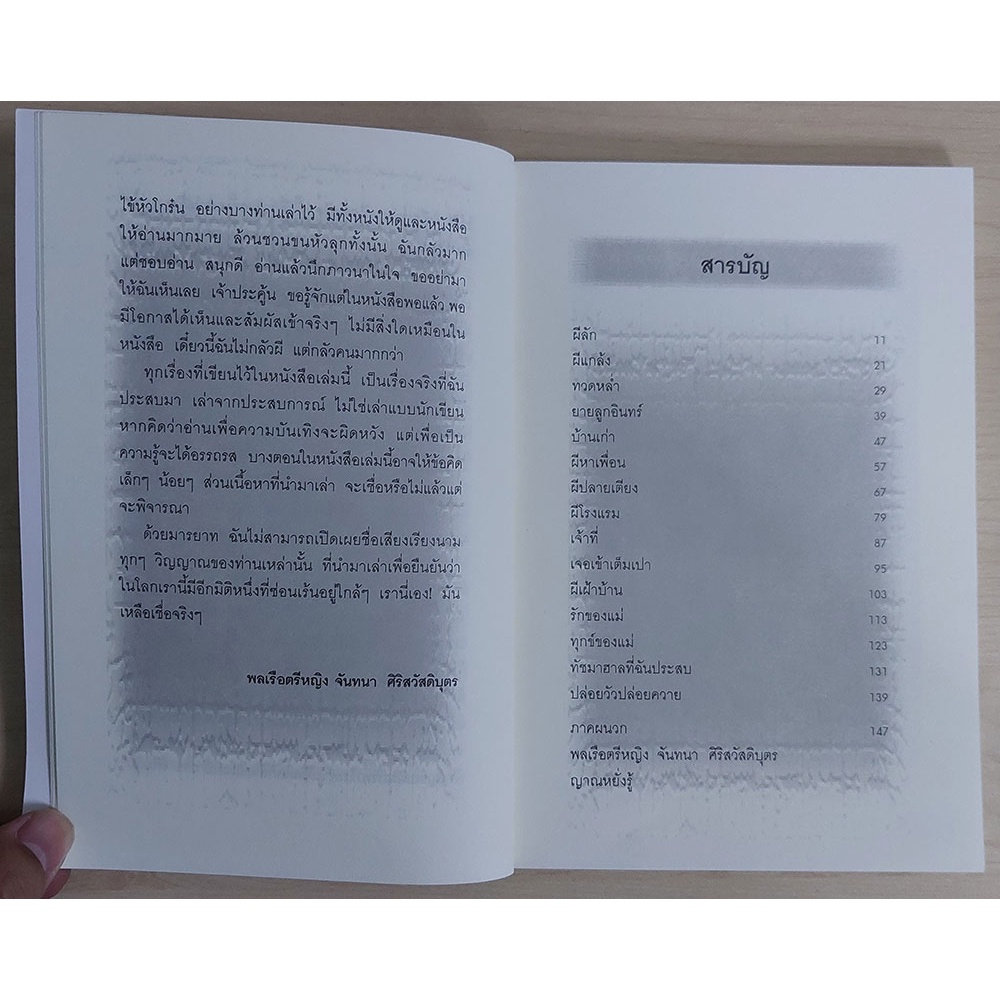 ไข้หัวโกร๋น อย่างบางท่านเล่าไว้ มีทั้งหนังให้ดูและหนังสือ
ให้อ่านมากมาย ล้วนชวนขนหัวลุกทั้งนั้น ฉันกลัวมาก
แต่ชอบอ่าน สนุกดี อ่านแล้วนึกภาวนาในใจ ขออย่ามา
ให้ฉันเห็นเลย เจ้าประคู้น ขอรู้จักแต่ในหนังสือพอแล้ว พอ
มีโอกาสได้เห็นและสัมผัสเข้าจริงๆ ไม่มีสิ่งใดเหมือนใน
หนังสือ เดี๋ยวนี้ฉันไม่กลัวผี แต่กลัวคนมากกว่า
ทุกเรื่องที่เขียนไว้ในหนังสือเล่มนี้ เป็นเรื่องจริงที่ฉัน
ประสบมา เล่าจากประสบการณ์ ไม่ใช่เล่าแบบนักเขียน
หากคิดว่าอ่านเพื่อความบันเทิงจะผิดหวัง แต่เพื่อเป็น
ความรู้จะได้อรรถรส บางตอนในหนังสือเล่มนี้อาจให้ข้อคิด
เล็กๆ น้อยๆ ส่วนเนื้อหาที่นำมาเล่า จะเชื่อหรือไม่แล้วแต่
จะพิจารณา
ด้วยมารยาท ฉันไม่สามารถเปิดเผยชื่อเสียงเรียงนาม
ทุกๆ วิญญาณของท่านเหล่านั้น ที่นำมาเล่าเพื่อยืนยันว่า
ในโลกเรานี้มีอีกมิติหนึ่งที่ซ่อนเร้นอยู่ใกล้ๆ เรานี่เอง! มัน
เหลือเชื่อจริงๆ
พลเรือตรีหญิง จันทนา ศิริสวัสดิบุตร
สารบัญ
ผีลัก 11
ผีแกล้ง 21
ทวดหล่ำ 29
ยายลูกอินทร์ 39
บ้านเก่า 47
ผีหาเพื่อน 57
ผีปลายเตียง 67
ผีโรงแรม 79
เจ้าที่ 87
เจอเข้าเต็มเปา 95
ผีเฝ้าบ้าน 103
รักของแม่ 113
ทุกข์ของแม่ 123
ทัชมาฮาลที่ฉันประสบ 131
ปล่อยวัวปล่อยควาย 139
ภาคผนวก 147
พลเรือตรีหญิง จันทนา ศิริสวัสดิบุตร
ญาณหยั่งรู้